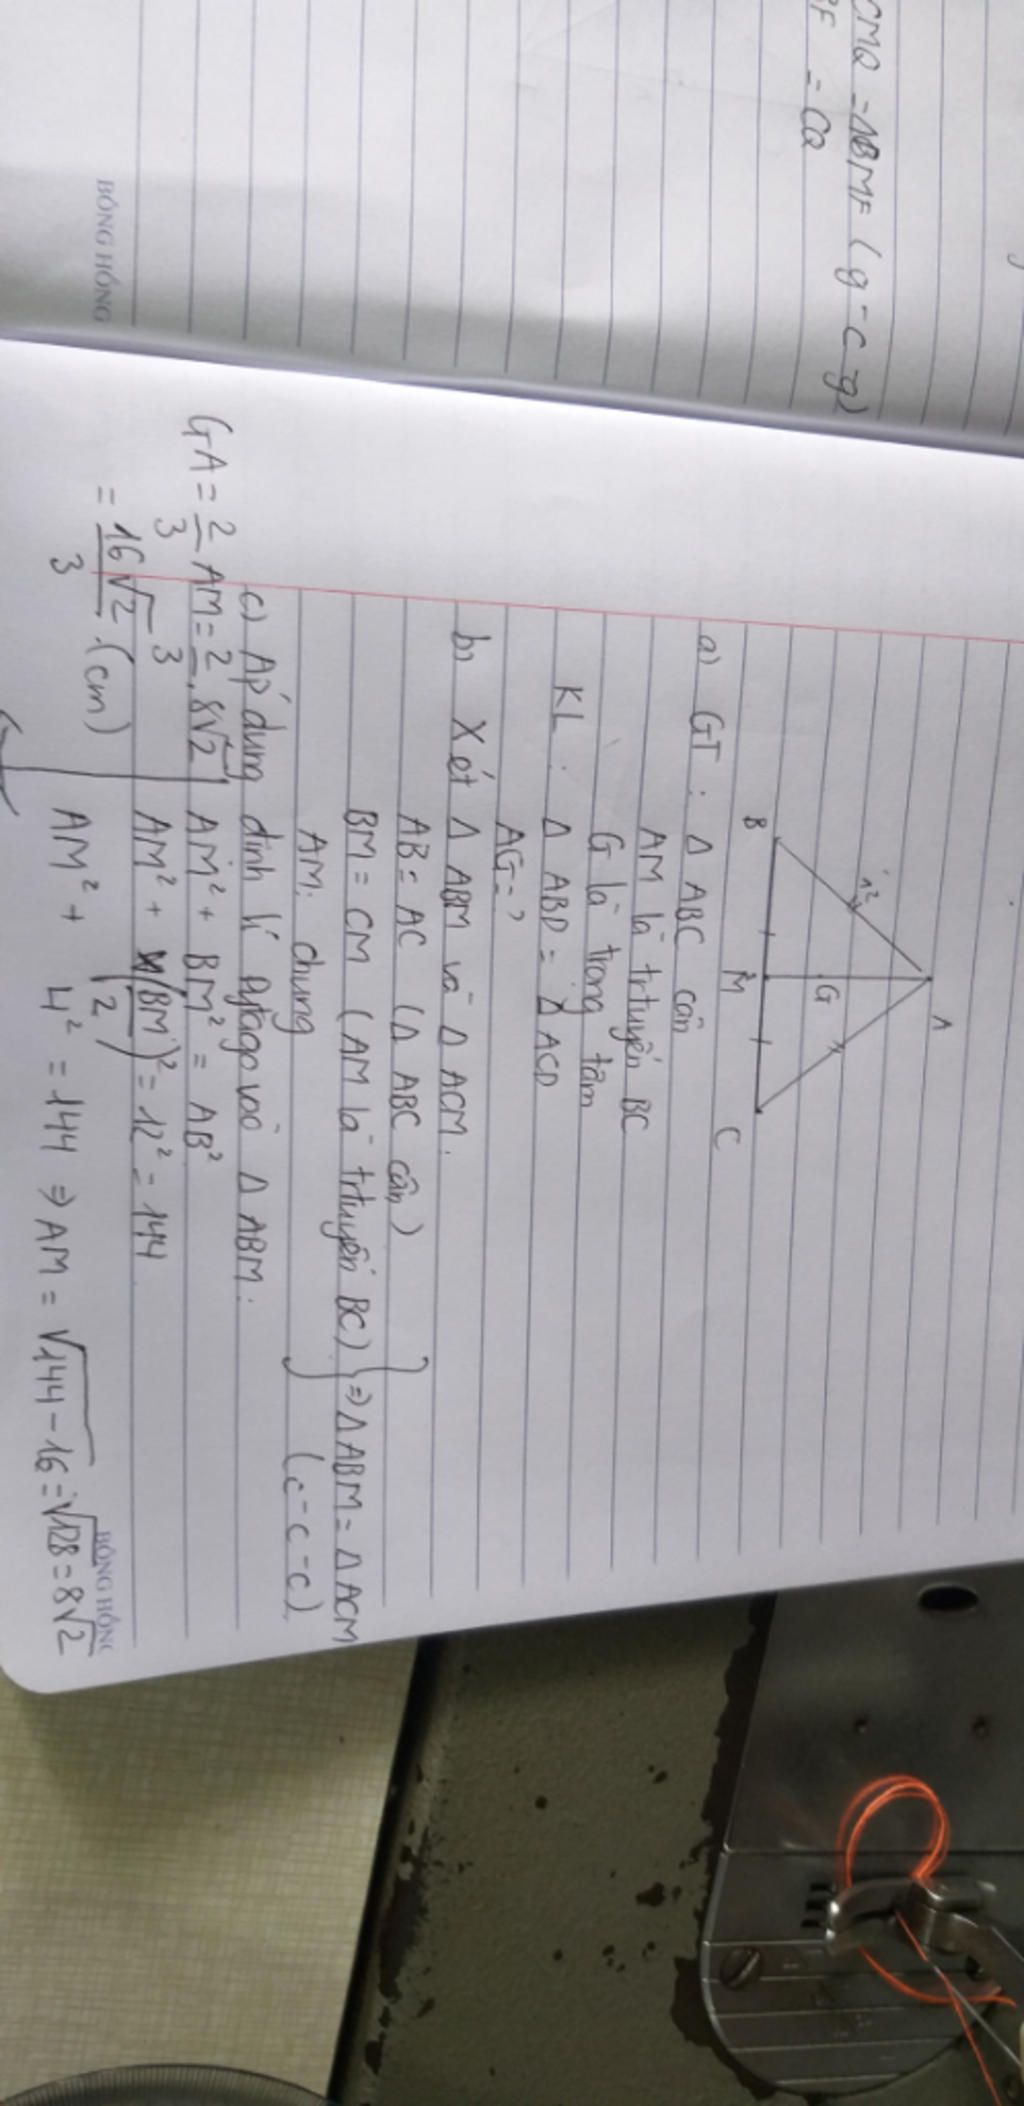 CMQ = ΔBMF (g-c-g)
F = CQ
BÓNG HỒNG
A
12
G
B
M
C
a) GT : Δ ABC cân
AM là trtuyến BC
G là trọng tâm
KL : Δ ABD = Δ ACD
AG = ?
b) Xét Δ ABM và Δ ACM.
AB = AC (Δ ABC cân)
BM = CM (AM là trtuyến BC) } ⇒ Δ ABM = Δ ACM
AM: chung (c-c-c)
c) Áp dụng định lí Pytago vào Δ ABM.
AM² + BM² = AB²
AM² + (BM/2)² = 12² = 144
AM² + 4² = 144 ⇒ AM = √144-16 = √128 = 8√2
GA = 2/3 AM = 2/3 . 8√2
= 16√2/3 (cm)
BÓNG HỒNG